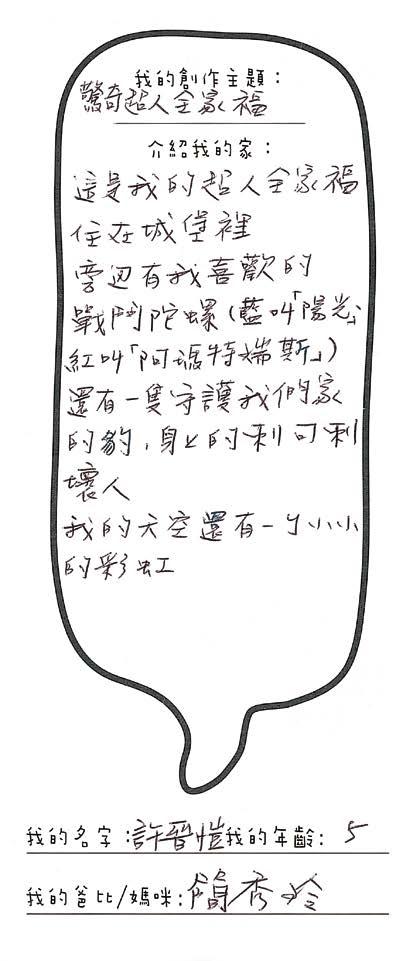 我的創作主題：
驚奇超人全家福
介紹我的家：
這是我的超人全家福
住在城堡裡
旁边有我喜歡的
戰鬥陀螺(藍叫「陽光」
紅叫「阿瑪特瑞斯」)
還有一隻守護我們家
的豹,身上的刺可刺
壞人
我的天空還有一ㄍ小小
的彩虹
我的名字：許晉愷我的年齡：5
我的爸比/媽咪：簡秀玲